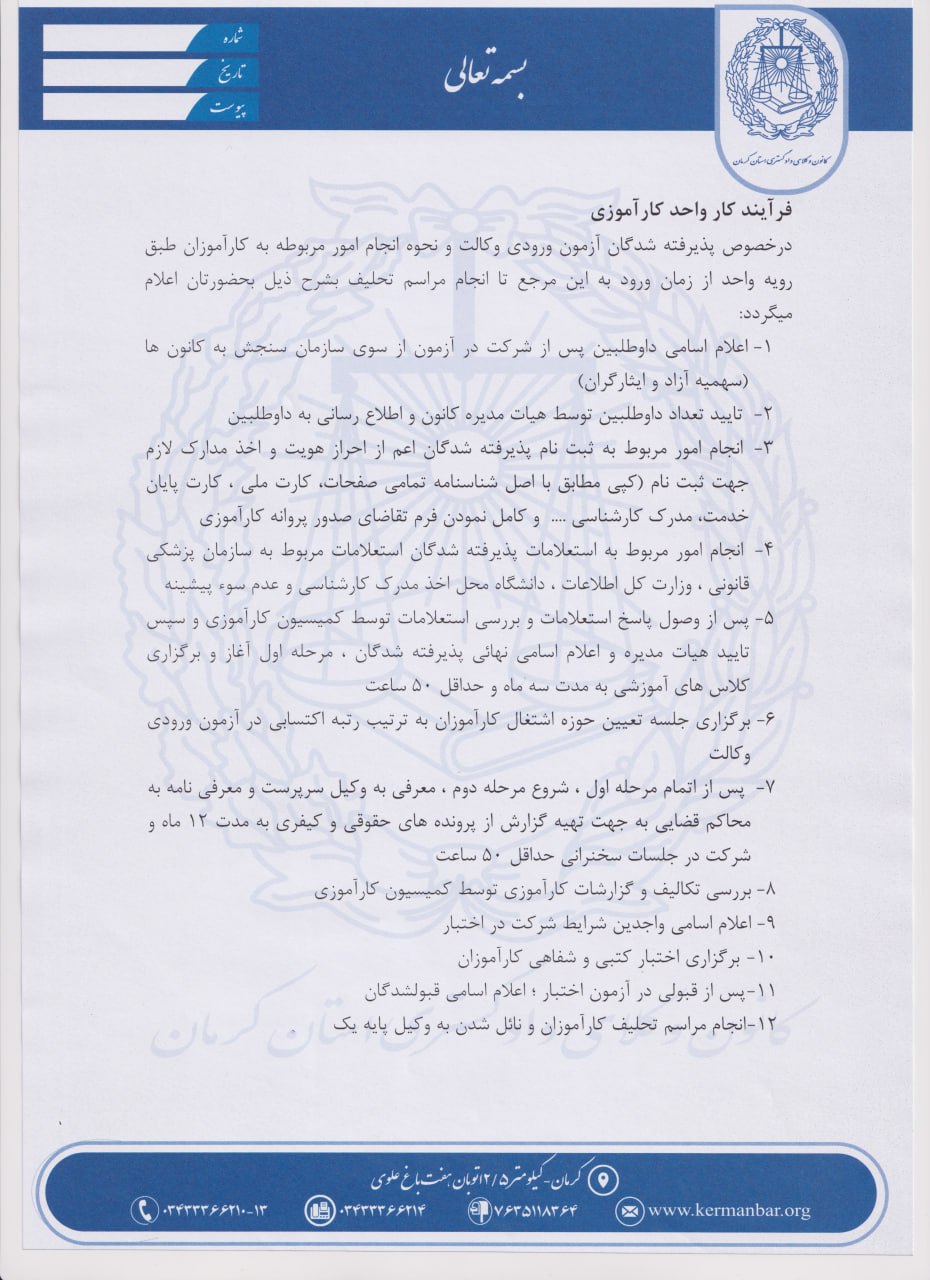 شماره
تاریخ
پیوست
بسمه تعالی
کانون وکلای دادگستری استان کرمان
فرآیند کار واحد کارآموزی
درخصوص پذیرفته شدگان آزمون ورودی وکالت و نحوه انجام امور مربوطه به کارآموزان طبق
رویه واحد از زمان ورود به این مرجع تا انجام مراسم تحلیف بشرح ذیل بحضورتان اعلام
میگردد:
۱- اعلام اسامی داوطلبین پس از شرکت در آزمون از سوی سازمان سنجش به کانون ها
(سهمیه آزاد و ایثارگران)
۲- تایید تعداد داوطلبین توسط هیات مدیره کانون و اطلاع رسانی به داوطلبین
۳- انجام امور مربوط به ثبت نام پذیرفته شدگان اعم از احراز هویت و اخذ مدارک لازم
جهت ثبت نام (کپی مطابق با اصل شناسنامه تمامی صفحات، کارت ملی ، کارت پایان
خدمت، مدرک کارشناسی .... و کامل نمودن فرم تقاضای صدور پروانه کارآموزی
۴- انجام امور مربوط به استعلامات پذیرفته شدگان استعلامات مربوط به سازمان پزشکی
قانونی ، وزارت کل اطلاعات ، دانشگاه محل اخذ مدرک کارشناسی و عدم سوء پیشینه
۵- پس از وصول پاسخ استعلامات و بررسی استعلامات توسط کمیسیون کارآموزی و سپس
تایید هیات مدیره و اعلام اسامی نهائی پذیرفته شدگان ، مرحله اول آغاز و برگزاری
کلاس های آموزشی به مدت سه ماه و حداقل ۵۰ ساعت
۶- برگزاری جلسه تعیین حوزه اشتغال کارآموزان به ترتیب رتبه اکتسابی در آزمون ورودی
وکالت
۷- پس از اتمام مرحله اول ، شروع مرحله دوم ، معرفی به وکیل سرپرست و معرفی نامه به
محاکم قضایی به جهت تهیه گزارش از پرونده های حقوقی و کیفری به مدت ۱۲ ماه و
شرکت در جلسات سخنرانی حداقل ۵۰ ساعت
۸- بررسی تکالیف و گزارشات کارآموزی توسط کمیسیون کارآموزی
۹- اعلام اسامی واجدین شرایط شرکت در اختبار
۱۰- برگزاری اختبار کتبی و شفاهی کارآموزان
۱۱-پس از قبولی در آزمون اختبار ؛ اعلام اسامی قبولشدگان
۱۲-انجام مراسم تحلیف کارآموزان و نائل شدن به وکیل پایه یک
کانون وکلای دادگستری استان کرمان
کرمان-کیلومتر ۱۲/۵ اتوبان هفت باغ علوی
www.kermanbar.org ۷۶۳۵۱۱۸۳۶۴ ۰۳۴۳۳۳۶۶۲۱۴ ۰۳۴۳۳۳۶۶۲۱۰-۱۳